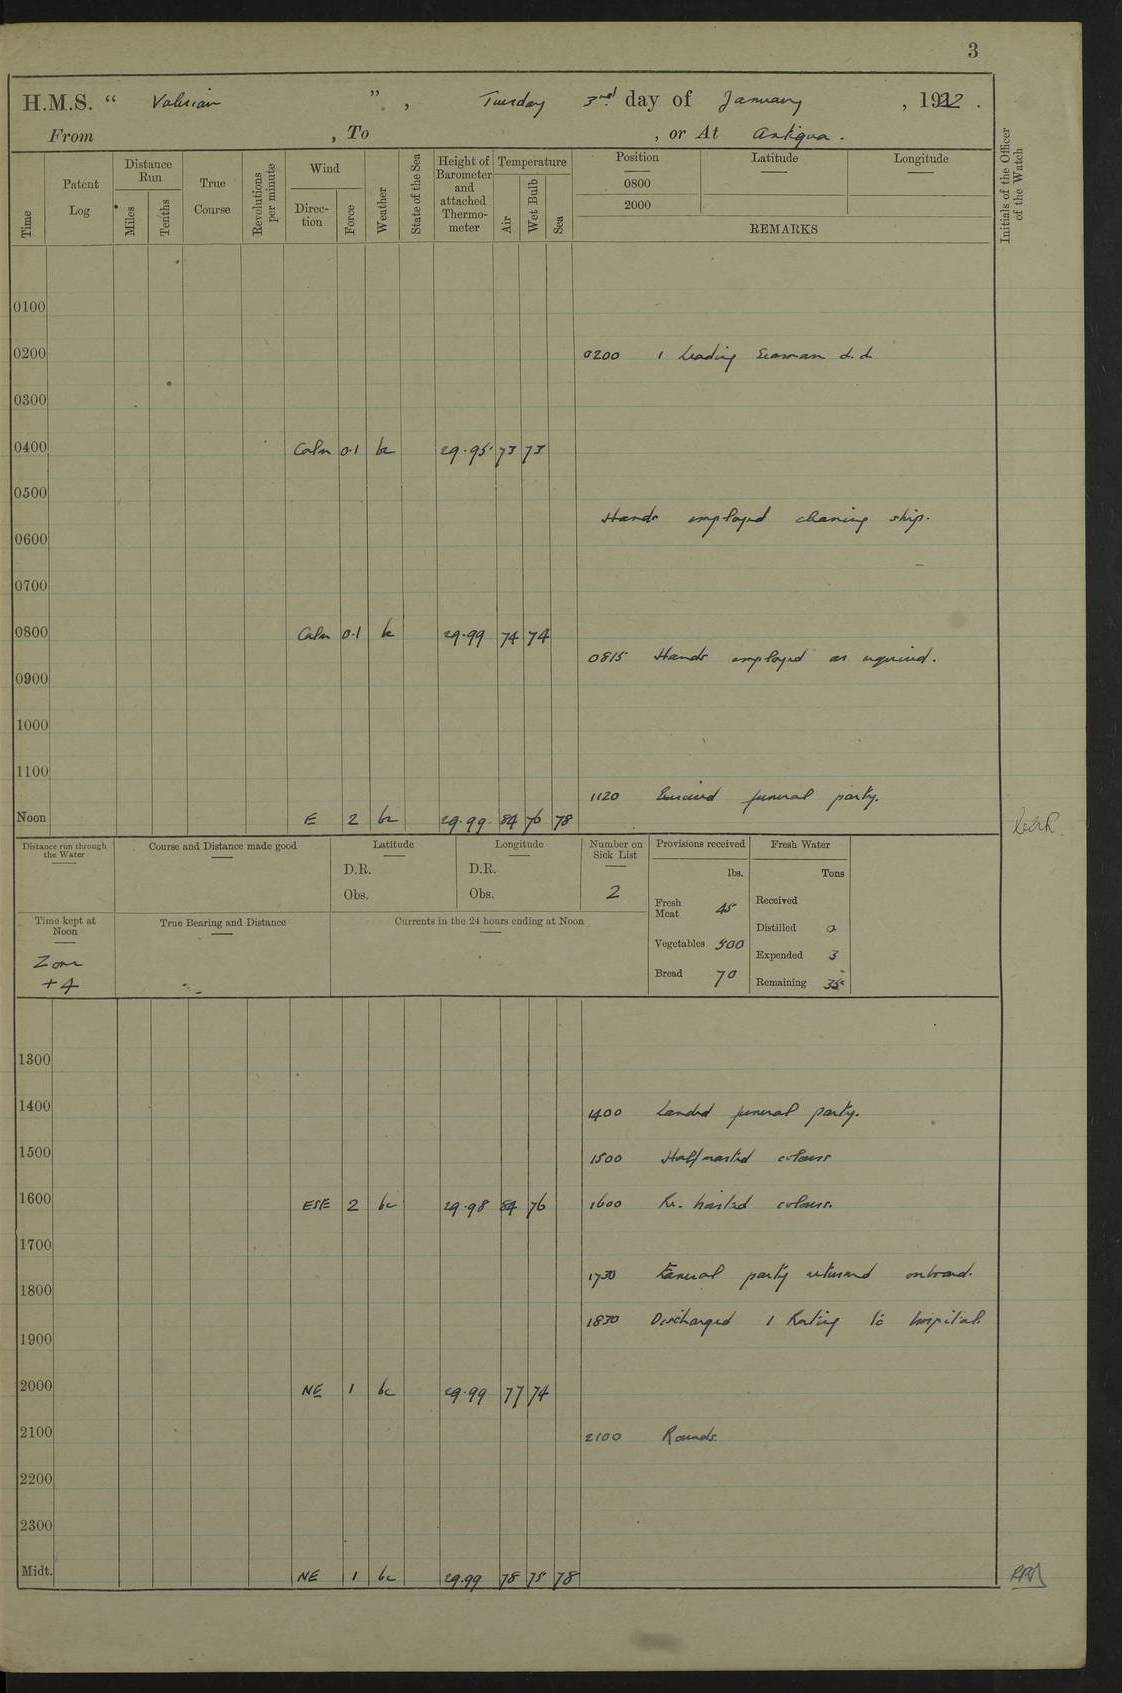 3
H.M.S. “ Valerian ” , Tuesday 3rd day of January , 1922 .
From , To , or At Antigua .
Time
Patent Log
Distance Run
Miles
Tenths
True Course
Revolutions per minute
Wind
Direction
Force
Weather
State of the Sea
Height of Barometer and attached Thermometer
Temperature
Air
Wet Bulb
Sea
Position Latitude Longitude
0800
2000
REMARKS
Initials of the Officer of the Watch
0100
0200 0200 1 Leading Seaman d.d.
0300
0400 Calm 0.1 bc 29.95 73 73
0500
Hands employed cleaning ship.
0600
0700
0800 Calm 0.1 bc 29.99 74 74
0815 Hands employed as required.
0900
1000
1100
1120 Exercised funeral party.
Noon E 2 bc 29.99 84 76 78
Distance run through the Water
Course and Distance made good
Latitude
D.R.
Obs.
Longitude
D.R.
Obs.
Number on Sick List
2
Provisions received
lbs.
Fresh Meat 45
Vegetables 500
Bread 70
Fresh Water
Tons
Received
Distilled 0
Expended 3
Remaining 35
Time kept at Noon
Zone
+4
True Bearing and Distance
Currents in the 24 hours ending at Noon
1300
1400 1400 Landed funeral party.
1500 1500 Half masted colours
1600 ESE 2 bc 29.98 84 76 1600 Re. hoisted colours.
1700
1730 Funeral party returned onboard.
1800
1830 Discharged 1 Rating to hospital.
1900
2000 NE 1 bc 29.99 77 74
2100 2100 Rounds.
2200
2300
Midt. NE 1 bc 29.99 78 75 78